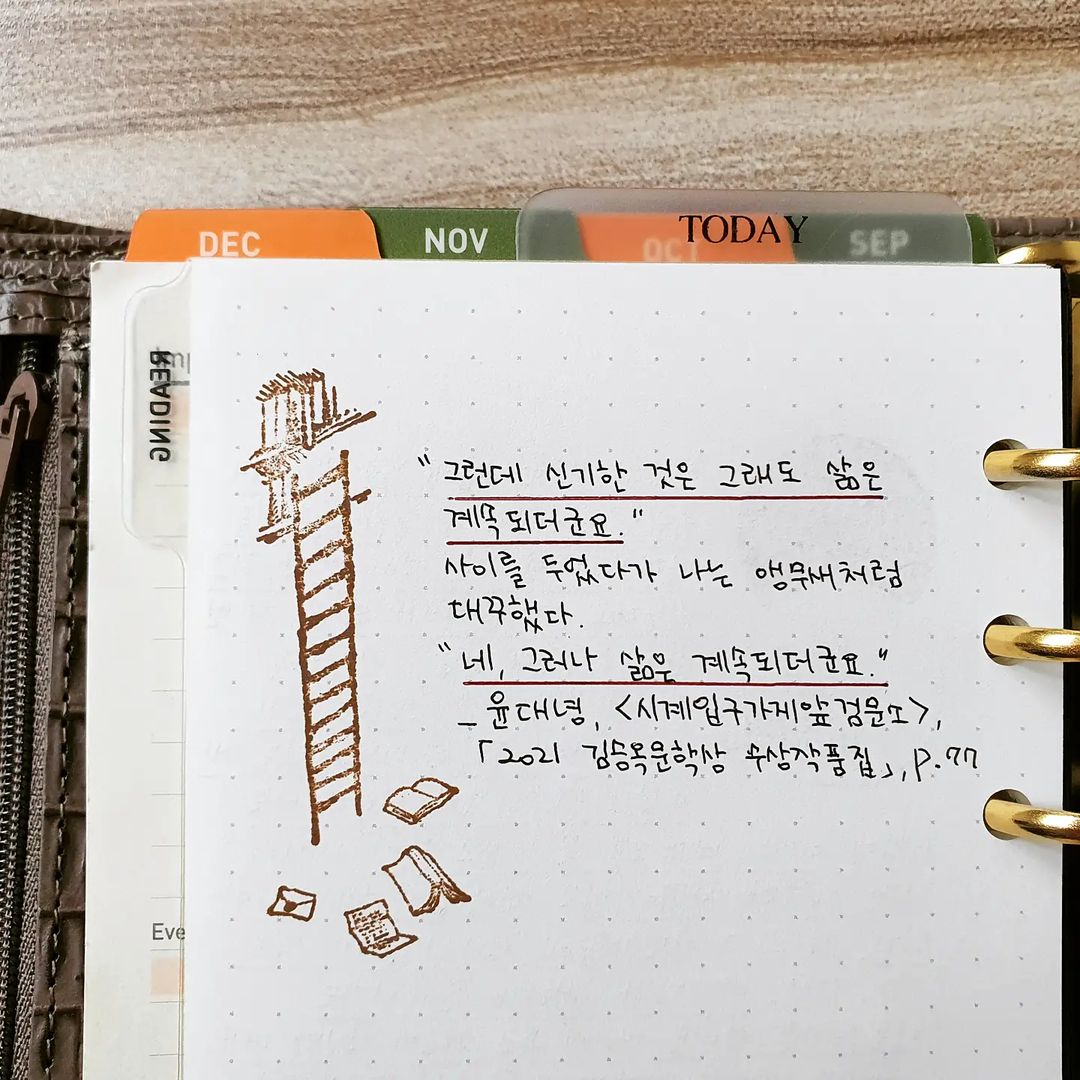 DEC NOV OCT TODAY SEP
READING
“그런데 신기한 것은 그래도 삶은
계속되더군요.”
사이를 두었다가 나는 앵무새처럼
대꾸했다.
“네, 그러나 삶은 계속되더군요.”
_윤대녕, <시계입구가게앞검문소>,
「2021 김승옥문학상 수상작품집」, p.77
Eve